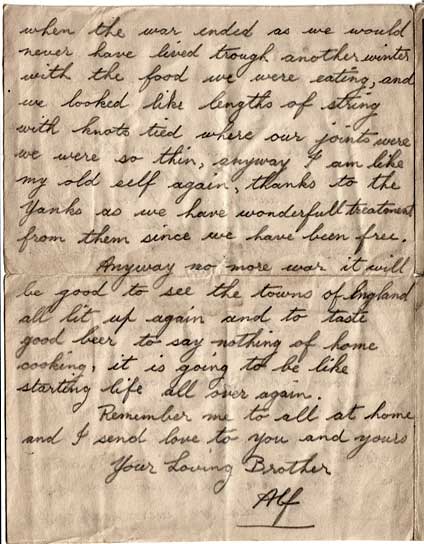 when the war ended as we would
never have lived trough another winter
with the food we were eating, and
we looked like lengths of string
with knots tied where our joints were
we were so thin, anyway I am like
my old self again, thanks to the
Yanks as we have wonderfull treatment
from them since we have been free.
Anyway no more war it will
be good to see the towns of England
all lit up again and to taste
good beer to say nothing of home
cooking, it is going to be like
starting life all over again.
Remember me to all at home
and I send love to you and yours
Your Loving Brother
Alf